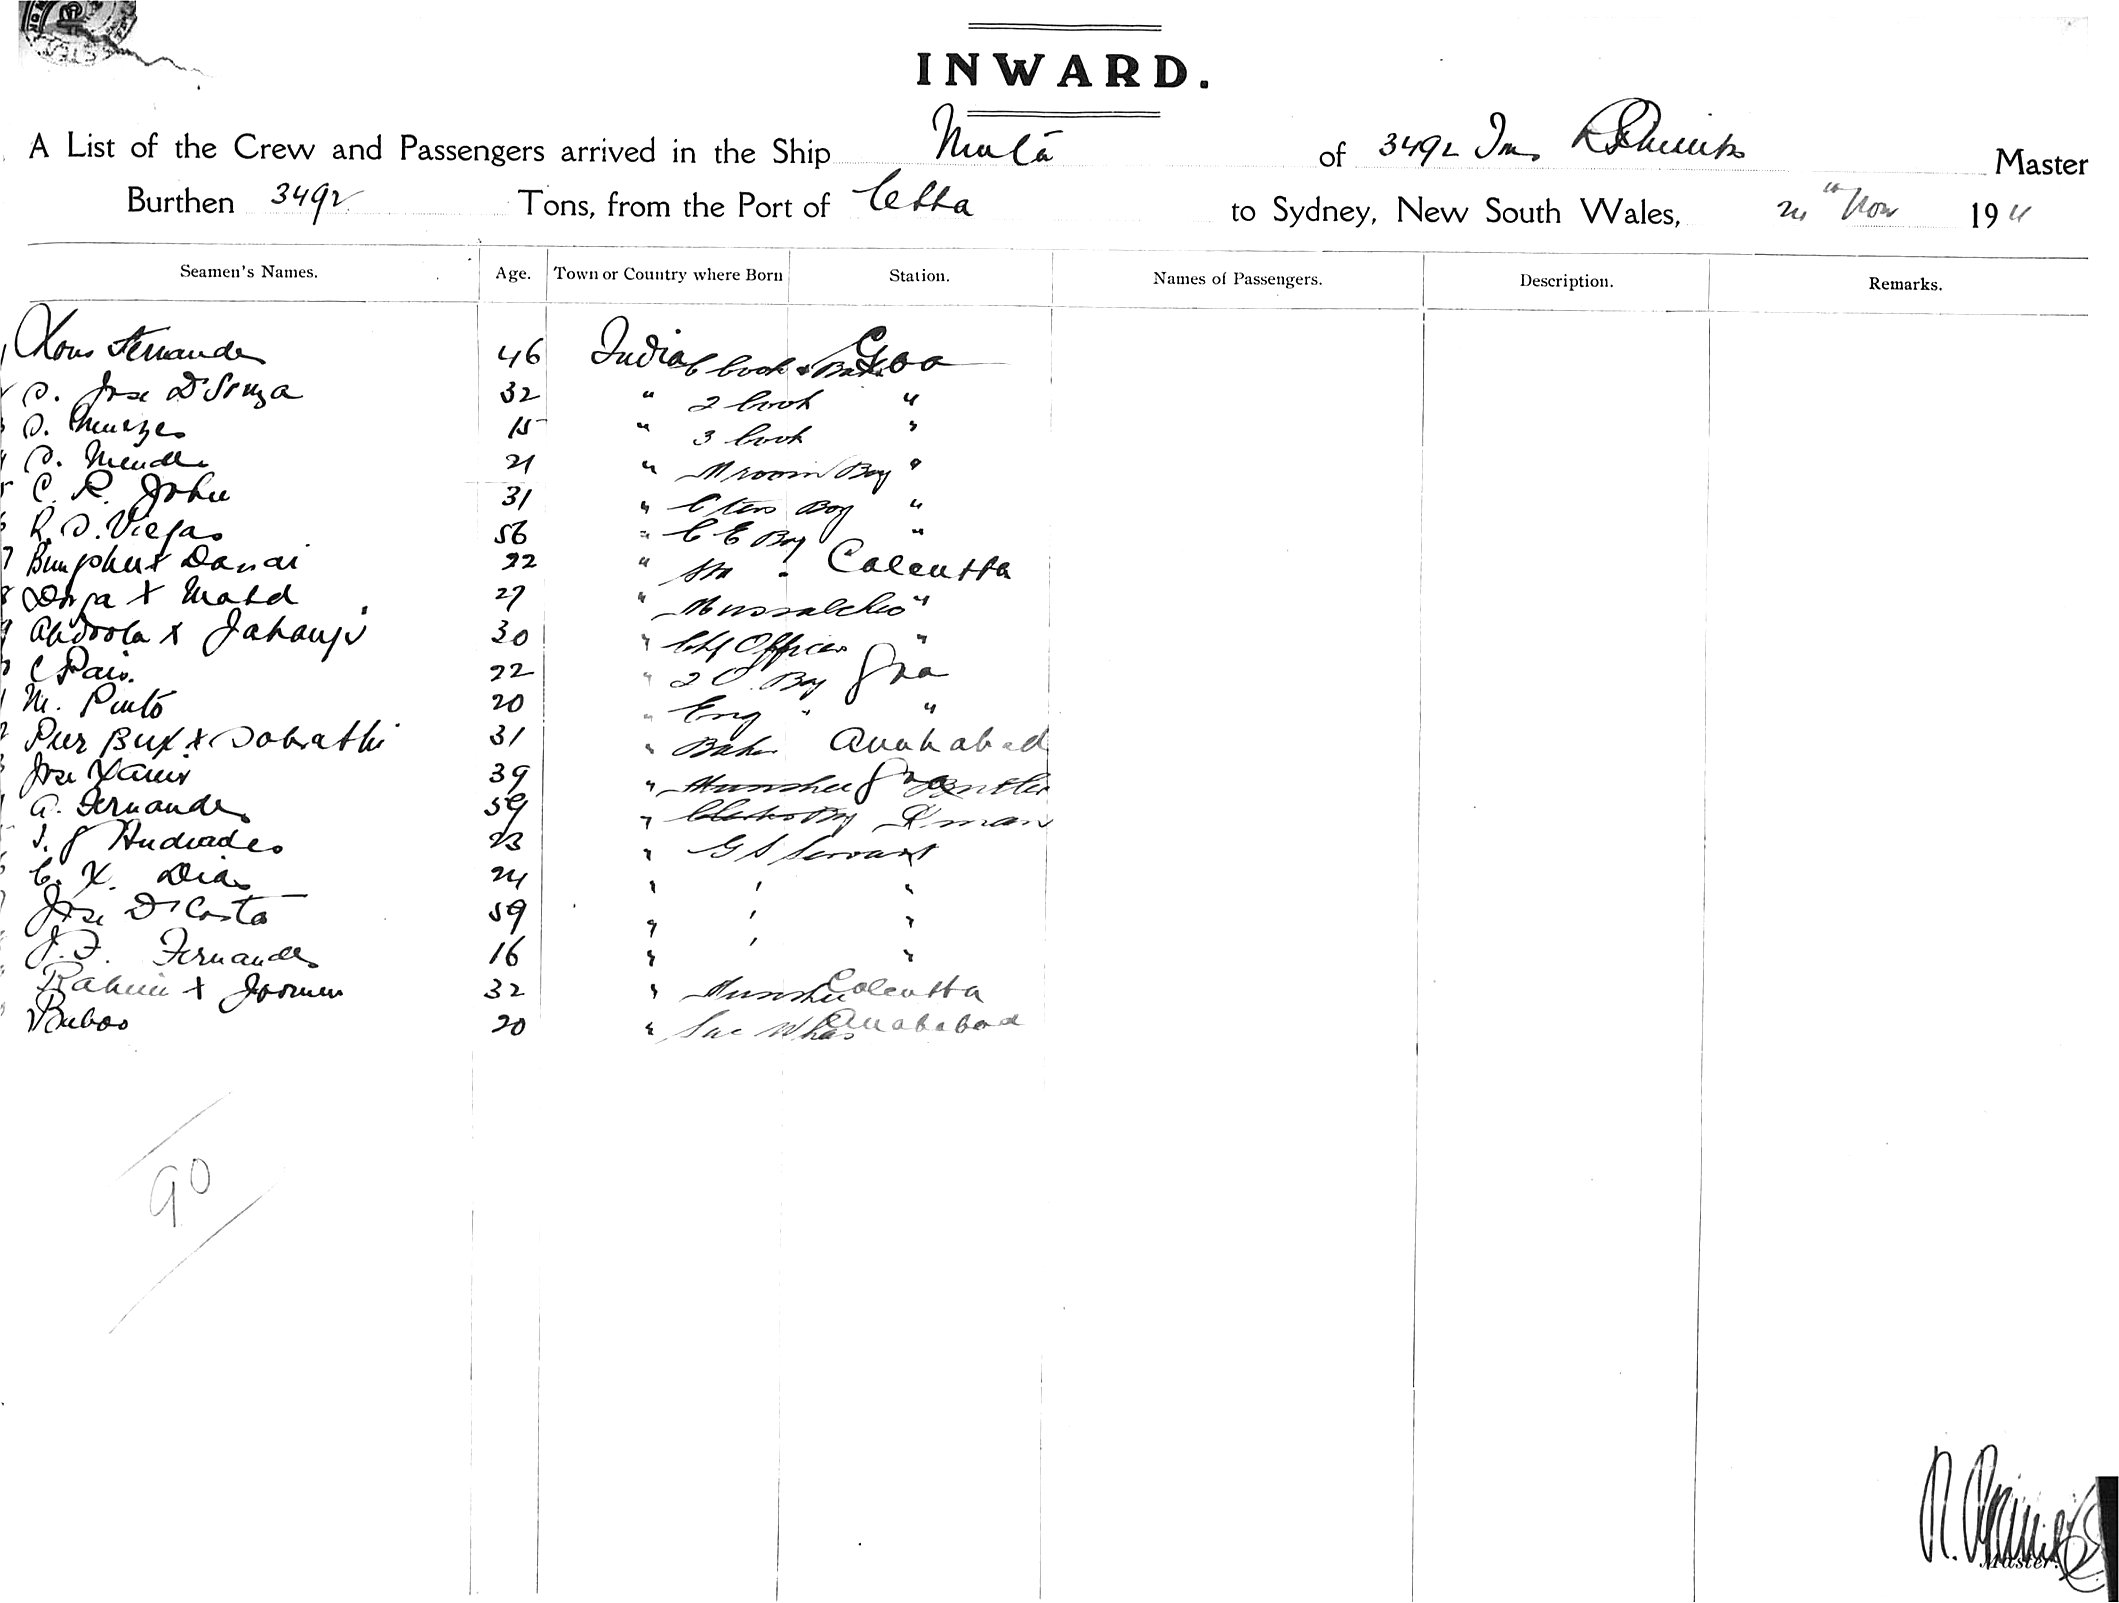 INWARD.
A List of the Crew and Passengers arrived in the Ship Muta of 3492 Tns Master
Burthen 3492 Tons, from the Port of Ctta to Sydney, New South Wales, 24th Nov 19
Seamen's Names. Age. Town or Country where Born Station. Names of Passengers. Description. Remarks.
Fernandes 46 India C Cook & Baker Goa
2 D. Jose D'Souza 32 " 2 Cook "
3 D. Menezes 15 " 3 Cook "
4 D. Mendes 21 " M room Boy "
5 C. R. John 31 " Boy "
6 R. D. Viegas 56 " C E Boy "
7 x Danai 22 " " Calcutta
8 x Mahd 27 " "
9 Abdoola x Jahangir 30 " Chf Officer "
C Pais. 22 " 2 O. Boy Goa
M. Pinto 20 " Eng " "
Peer Bux x 31 " Baker
Jose Xavier 39 " Goa Butler
A. Fernandes 59 "
J. Andrades 23 " G S Servant
C. X. Dias 24 " " "
Jose D'Costa 59 " " "
J. F. Fernandes 16 " " "
Rahim x Joomun 32 " Calcutta
Baboo 20 "
90
Master.